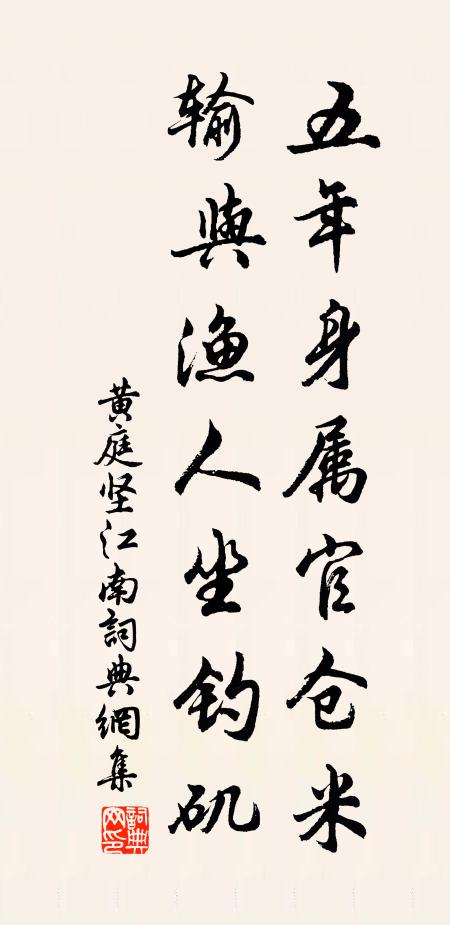 五年身属官仓米
输與漁人坐钓矶
黄庭坚江南詞典網集
詞典網印